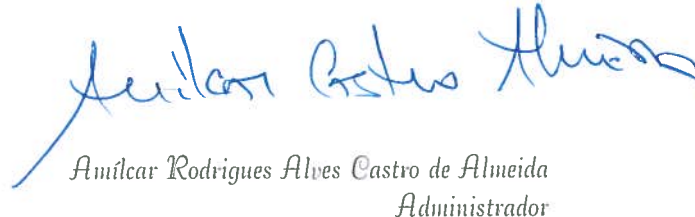 Amílcar Castro Almeida
Amílcar Rodrigues Alves Castro de Almeida
Administrador